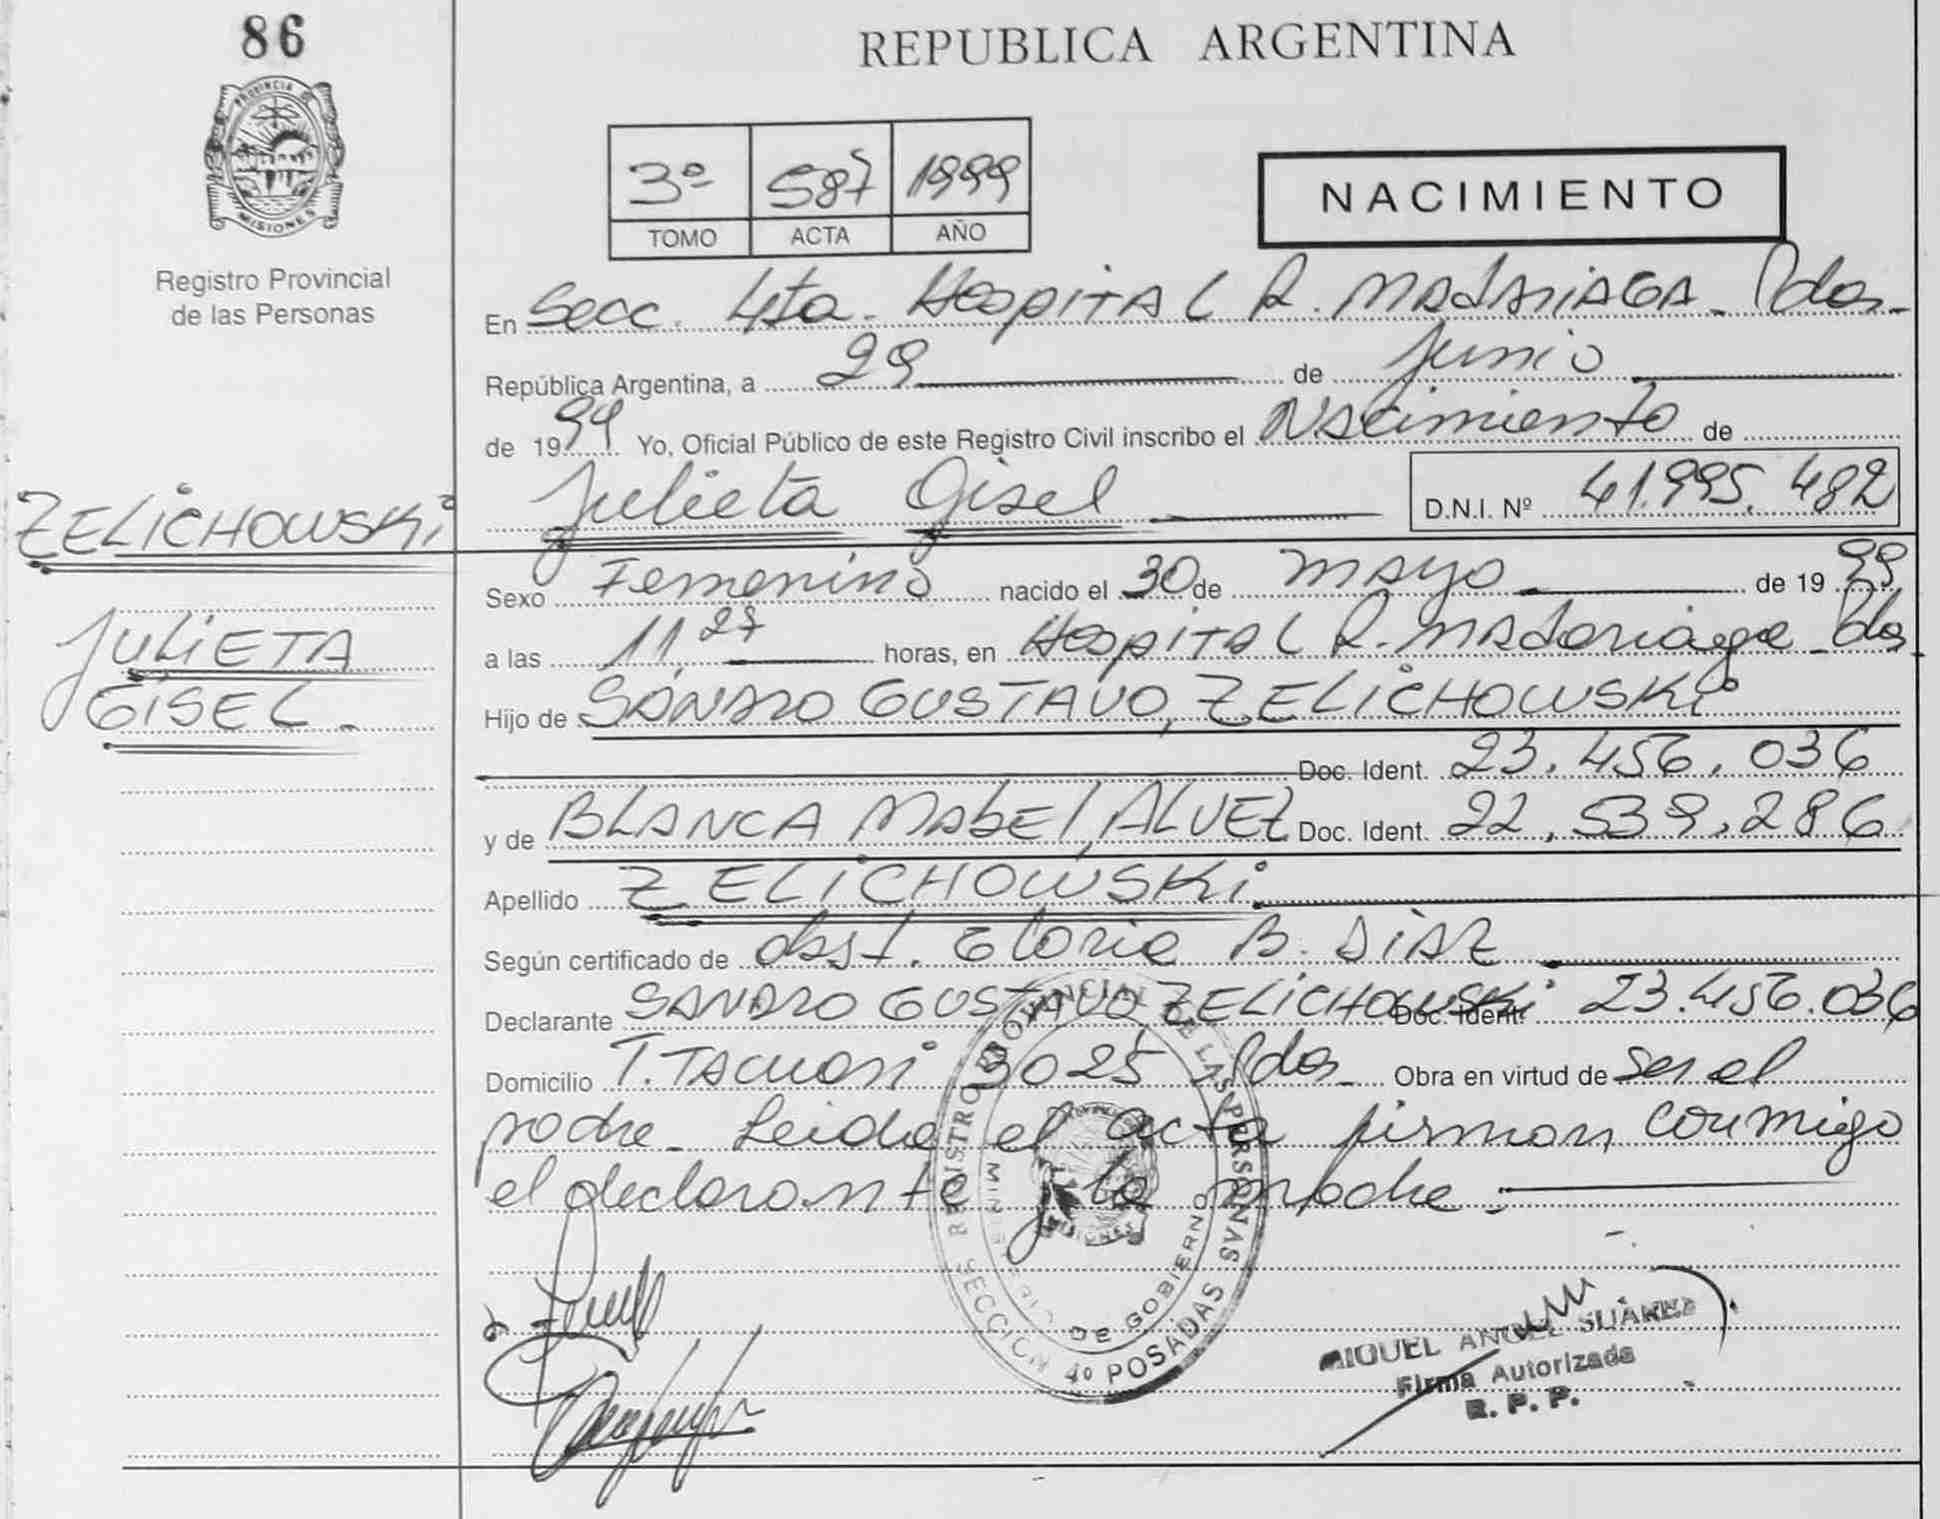 86
REPUBLICA ARGENTINA
PROVINCIA DE
MISIONES
Registro Provincial
de las Personas
3º 587 1999
TOMO ACTA AÑO
NACIMIENTO
En Secc. 4ta. Hospital R. Madariaga - Pdas -
República Argentina, a 29 de junio
de 1999 Yo, Oficial Público de este Registro Civil inscribo el Nacimiento de
Julieta Gisel D.N.I. Nº 41.995.482
ZELICHOWSKI
JULIETA
GISEL.
Sexo Femenino nacido el 30 de mayo de 1999
a las 11,27 horas, en Hospital R. Madariaga - Pdas
Hijo de SANDRO GUSTAVO, ZELICHOWSKI
Doc. Ident. 23.456.036
y de BLANCA MABEL, ALVEZ Doc. Ident. 22.539.286
Apellido ZELICHOWSKI
Según certificado de obst. Gloria B. DIAZ
Declarante SANDRO GUSTAVO ZELICHOWSKI Doc. Ident. 23.456.036
Domicilio T. Tacuari 3025 Pdas - Obra en virtud de ser el
padre - Leida el acta firman conmigo
el declarante y la madre.
REGISTRO PROVINCIAL DE LAS PERSONAS
MINISTERIO DE GOBIERNO
SECCION 4º POSADAS
MISIONES
MIGUEL ANGEL SUÁREZ
Firma Autorizada
R. P. P.